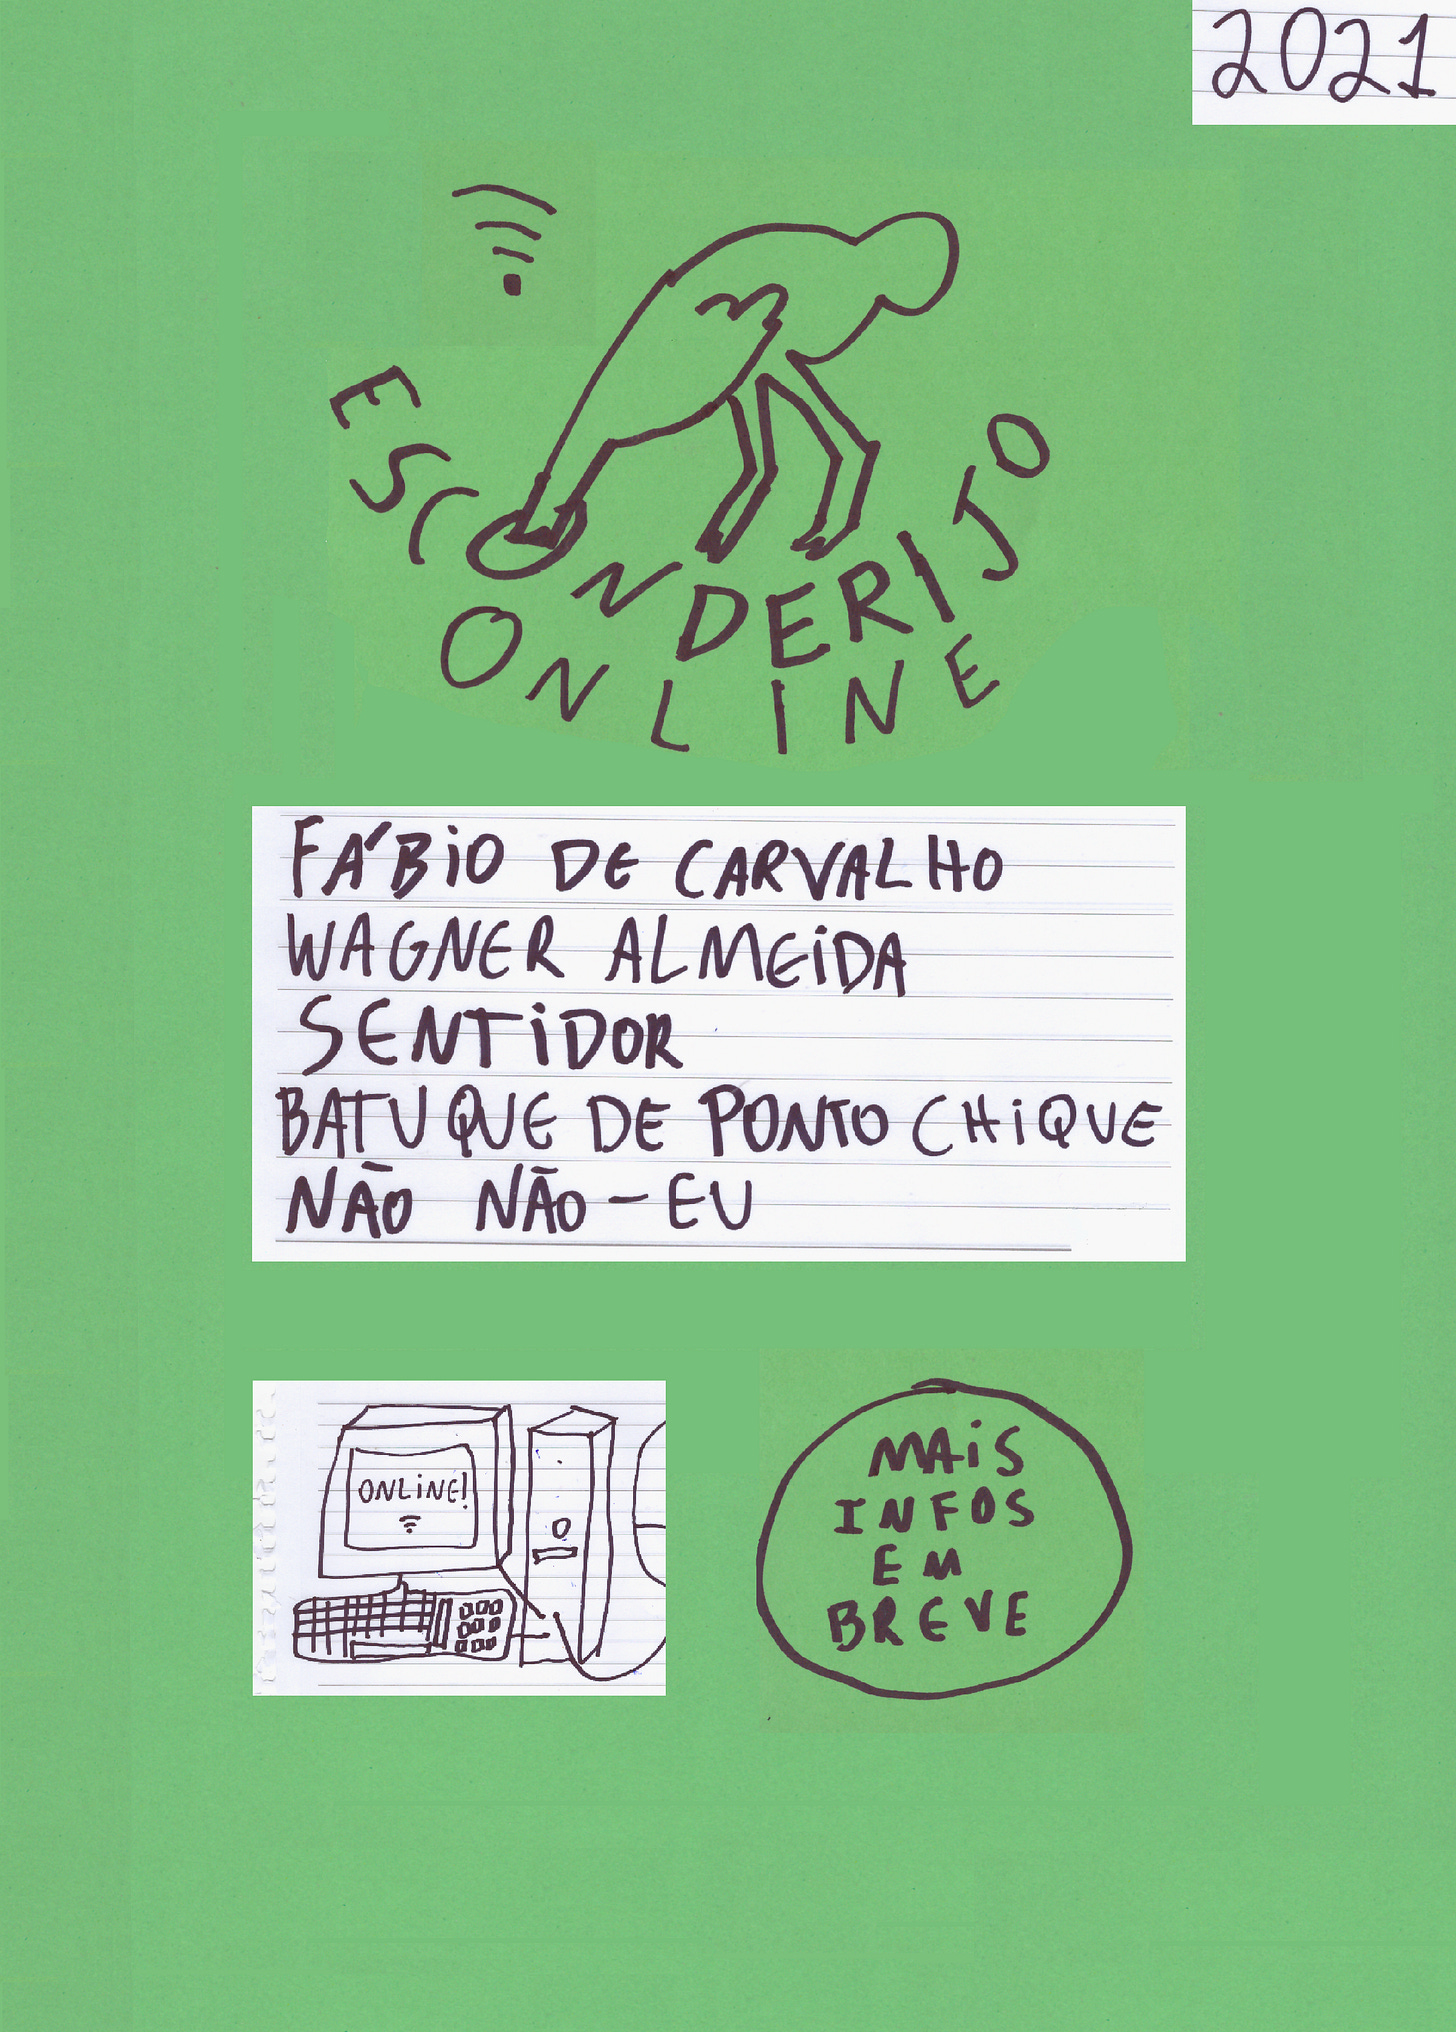 2021
ESCONDERIJO
ONLINE
FÁBIO DE CARVALHO
WAGNER ALMEIDA
SENTIDOR
BATUQUE DE PONTO CHIQUE
NÃO NÃO-EU
ONLINE!
MAIS
INFOS
EM
BREVE